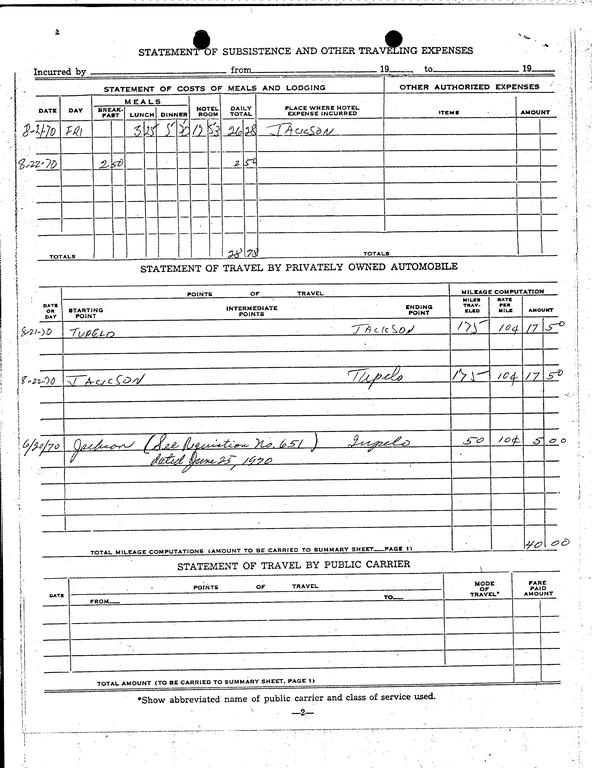 2
STATEMENT OF SUBSISTENCE AND OTHER TRAVELING EXPENSES
Incurred by from 19 to 19
STATEMENT OF COSTS OF MEALS AND LODGING OTHER AUTHORIZED EXPENSES
DATE DAY MEALS BREAK-FAST LUNCH DINNER HOTEL ROOM DAILY TOTAL PLACE WHERE HOTEL EXPENSE INCURRED ITEMS AMOUNT
8-21-70 FRI 3 25 5 17 53 26 28 JACKSON
8-22-70 2 50 2 50
TOTALS 28 78 TOTALS
STATEMENT OF TRAVEL BY PRIVATELY OWNED AUTOMOBILE
POINTS OF TRAVEL MILEAGE COMPUTATION
DATE OR DAY STARTING POINT INTERMEDIATE POINTS ENDING POINT MILES TRAV-ELED RATE PER MILE AMOUNT
8-21-70 TUPELO JACKSON 175 10¢ 17 50
8-22-70 JACKSON Tupelo 175 10¢ 17 50
6/20/70 Jackson (See Requisition No. 651) Tupelo 50 10¢ 5 00
dated June 25, 1970
40 00
TOTAL MILEAGE COMPUTATIONS (AMOUNT TO BE CARRIED TO SUMMARY SHEET PAGE 1)
STATEMENT OF TRAVEL BY PUBLIC CARRIER
DATE POINTS OF TRAVEL MODE OF TRAVEL* FARE PAID AMOUNT
FROM TO
TOTAL AMOUNT (TO BE CARRIED TO SUMMARY SHEET, PAGE 1)
*Show abbreviated name of public carrier and class of service used.
—2—